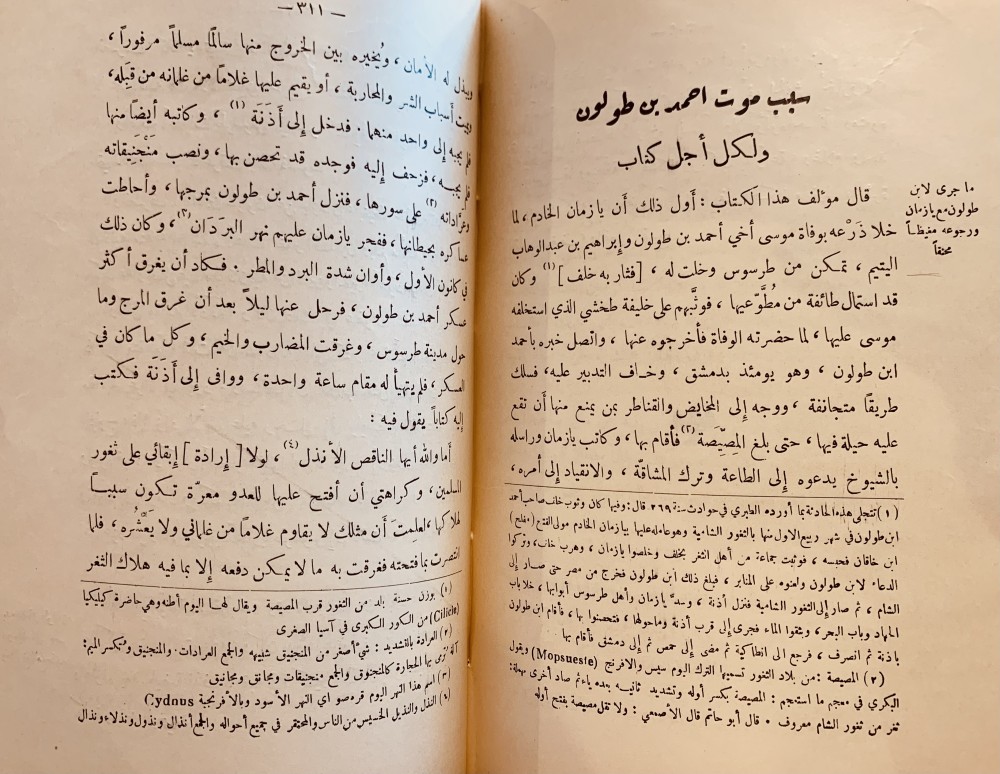 سبب موت احمد بن طولون
ولكل أجل كتاب
ما جرى لابن
طولون مع يازمان
ورجوعه مغيظاً
محنقاً
قال مؤلف هذا الكتاب: أول ذلك أن يازمان الخادم، لما
خلا ذَرْعه بوفاة موسى أخي أحمد بن طولون وإبراهيم بن عبدالوهاب
اليتيم ، تمكن من طرسوس وخلت له ، [فثار به خلف] (١) وكان
قد استمال طائفة من مُطَّوِّعيها ، فوثَّبهم على خليفة طخشي الذي استخلفه
موسى عليها ، لما حضرته الوفاة فأخرجوه عنها ، واتصل خبره بأحمد
ابن طولون ، وهو يومئذ بدمشق ، وخاف التدبير عليه، فسلك
طريقاً متجانفة ، ووجه إلى المخايض والقناطر بمن يمنع منها أن تقع
عليه حيلة فيها ، حتى بلغ المِصِّيصة (٢) فأقام بها ، وكاتب يازمان وراسله
بالشيوخ يدعوه إلى الطاعة وترك المشاقّة ، والانقياد إلى أمره ،
(١) تنجلي هذه الحادثة بما أورده الطبري في حوادث سنة ٢٦٩ قال: وفيها كان وثوب خلف صاحب أحمد
ابن طولون في شهر ربيع الاول منها بالثغور الشامية وهو عامله عليها بيازمان الخادم مولى الفتح (مفلح)
ابن خاقان فحبسه ، فوثبت جماعة من أهل الثغر بخلف وخلصوا يازمان ، وهرب خلف، وتركوا
الدعاء لابن طولون ولعنوه على المنابر ، فبلغ ذلك ابن طولون فخرج من مصر حتى صار إلى
الشام ، ثم صار إلى الثغور الشامية فنزل أذنة ، وسدَّ يازمان وأهل طرسوس أبوابها ، خلا باب
الجهاد وباب البحر ، وبثقوا الماء فجرى إلى قرب أذنة وماحولها ، فتحصنوا بها ، فأقام ابن طولون
بأذنة ثم انصرف ، فرجع الى انطاكية ثم مضى إلى حمص ثم إلى دمشق فأقام بها
(٢) المصيصة : من بلاد الثغور تسميها الترك اليوم سيس والافرنج (Mopsueste) ويقول
البكري في معجم ما استعجم : المصيصة بكسر أوله وتشديد ثانيه بعده ياء ثم صاد أخرى مهملة:
ثغر من ثغور الشام معروف . قال أبو حاتم قال الأصمعي : ولا تقل مصيصة بفتح أوله
— ٣١١ —
ويبذل له الأمان ، ويُخيره بين الخروج منها سالمًا مسلماً مرفوراً ،
أسباب الشر والمحاربة ، أو يقيم عليها غلامًا من غلمانه من قِبَله،
فلم يجبه إلى واحد منهما . فدخل إلى أَذَنَة (١) ، وكاتبه أيضًا منها
فلم يجبه ، فزحف إليه فوجده قد تحصن بها ، ونصب مَنْجَنِيقاته
وعرّاداته (٢) على سورها ، فنزل أحمد بن طولون بمرجها ، وأحاطت
عساكره بحيطانها ، ففجر يازمان عليهم نهر البرَدَان (٣) ، وكان ذلك
في كانون الأول ، وأوان شدة البرد والمطر . فكاد أن يغرق أكثر
عسكر أحمد بن طولون ، فرحل عنها ليلاً بعد أن غرق المرج وما
حول مدينة طرسوس ، وغرقت المضارب والخيم ، وكل ما كان في
العسكر ، فلم يتهيأ له مقام ساعة واحدة ، ووافى إلى أَذَنَة فكتب
إليه كتاباً يقول فيه :
أما والله أيها الناقص الأنذل (٤) ، لولا [إرادة] إبقائي على ثغور
المسلمين ، وكراهتي أن أفتح عليها للعدو معرّة تكون سبباً
لهلاكها ، لعلمت أن مثلك لا يقاوم غلامًا من غلماني ولا يَعْشُره ، فلما
انتصرت بما فتحته فغرقت به ما لا يمكن دفعه إلا بما فيه هلاك الثغر
(١) بوزن حسنة بلد من الثغور قرب المصيصة ويقال لها اليوم أطنه وهي حاضرة كيليكيا
(Cilicie) من الكور الكبرى في آسيا الصغرى
(٢) العرادة بالتشديد : شيء أصغر من المنجنيق شبيهه والجمع العرادات. والمنجنيق وتكسر الميم:
آلة ترمى بها الحجارة كالمنجنوق والجمع منجنيقات ومجانق ومجانيق
(٣) اسم هذا النهر اليوم قره صو اي النهر الأسود وبالافرنجية Cydnus
(٤) النذل والنذيل الخسيس من الناس والمحتقر في جميع أحواله والجمع أنذال ونذول ونذلاء ونذال